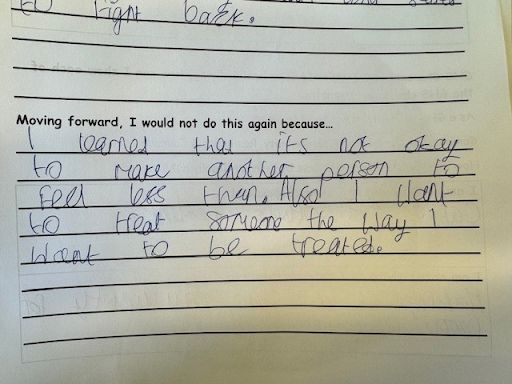 to fight back.
Moving forward, I would not do this again because...
I learned that it's not okay
to make another person to
feel less than. Also I want
to treat someone the way I
want to be treated.